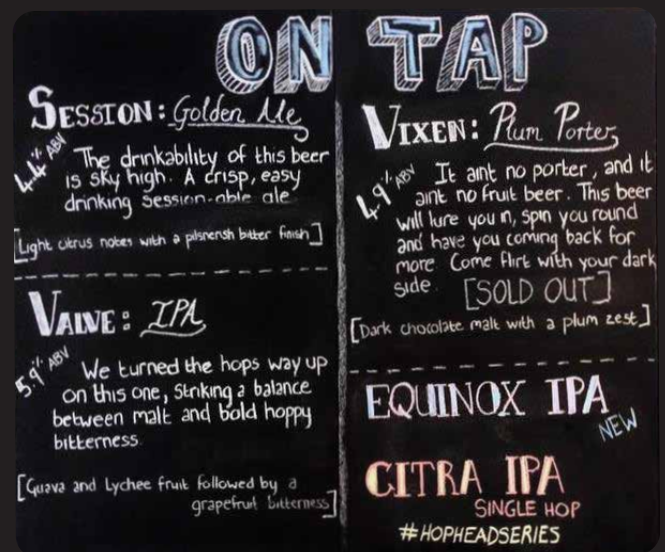 ON TAP
SESSION: Golden Ale
4.4% ABV
The drinkability of this beer
is sky high. A crisp, easy
drinking session-able ale
[Light citrus notes with a pilsnerish bitter finish]
VALVE: IPA
5.9% ABV
We turned the hops way up
on this one, striking a balance
between malt and bold hoppy
bitterness
[Guava and Lychee fruit followed by a
grapefruit bitterness]
VIXEN: Plum Porter
4.9% ABV
It aint no porter, and it
aint no fruit beer. This beer
will lure you in, spin you round
and have you coming back for
more Come flirt with your dark
side. [SOLD OUT]
[Dark chocolate malt with a plum zest]
EQUINOX IPA
NEW
CITRA IPA
SINGLE HOP
#HOPHEADSERIES